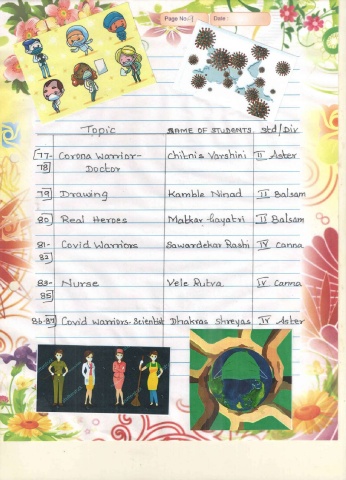 Page No. Date :
Topic NAME OF STUDENTS Std/Div
77- Corona Warrior- Chitnis Varshini II Aster
78 Doctor
79 Drawing Kamble Ninad II Balsam
80 Real Heroes Makkar Gayatri II Balsam
81- Covid Warriors Sawardekar Rashi IV Canna
82
83- Nurse Vele Rutva IV Canna
85
86-87 Covid Warriors-Scientist Dhakras Shreyas IV Aster